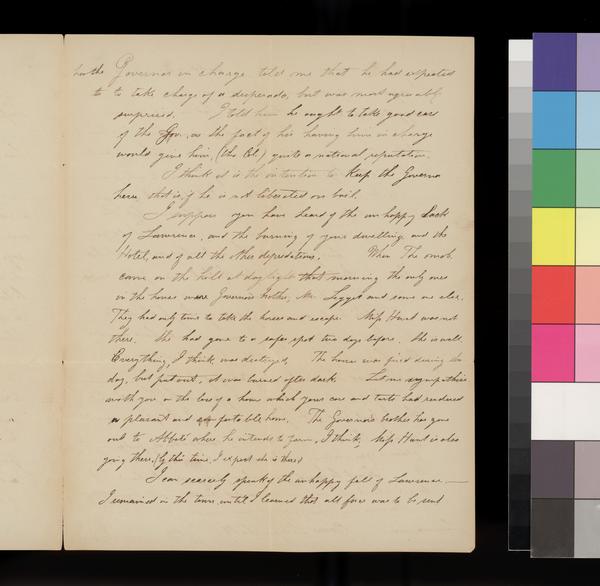 has the Governor in charge told me that he had expected
to to take charge of a desperado, but was most agreeably
surprised. I told him he ought to take good care
of the Gov, as the fact of his having him in charge
would give him, (the Col.) quite a national reputation.
I think it is the intention to keep the Governor
here, that is if he is not liberated on bail.
I suppose you have heard of the unhappy Sack
of Lawrence, and the burning of your dwelling and the
Hotel, and of all the other depredations. When The mob
came on the hill at daylight that morning the only ones
in the house were Governors brother, Mr. Leggett and some one else.
They had only time to take the horses and escape. Miss Hunt was not
there. She had gone to a safer spot two days before. She is well.
Everything, I think, was destroyed. The house was fired during the
day, but put out, it was burned after dark. Let me sympathise
with you on the loss of a home which your care and taste had rendered
a pleasant and comfortable home. The Governors brother has gone
out to where he intends to farm, I think, Miss Hunt is also
going there, (by this time I expect she is there)
I can scarcely speak of the unhappy fall of Lawrence—
I remained in the town, until I learned that all force was to be used